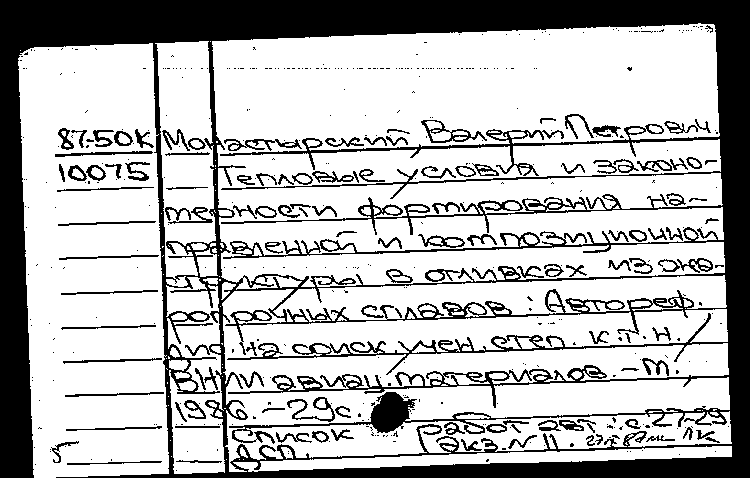 87-50К Монастырский, Валерий Петрович.
10075 Тепловые условия и законо-
мерности формирования на-
правленной и композиционной
структуры в отливках из жа-
ропрочных сплавов : Автореф.
дис. на соиск. учен. степ. к.т.н. /
ВНИИ авиац. материалов. - М.,
1986. - 29с.
Список работ авт.: с.27-29
ДСП. Экз. N 11.